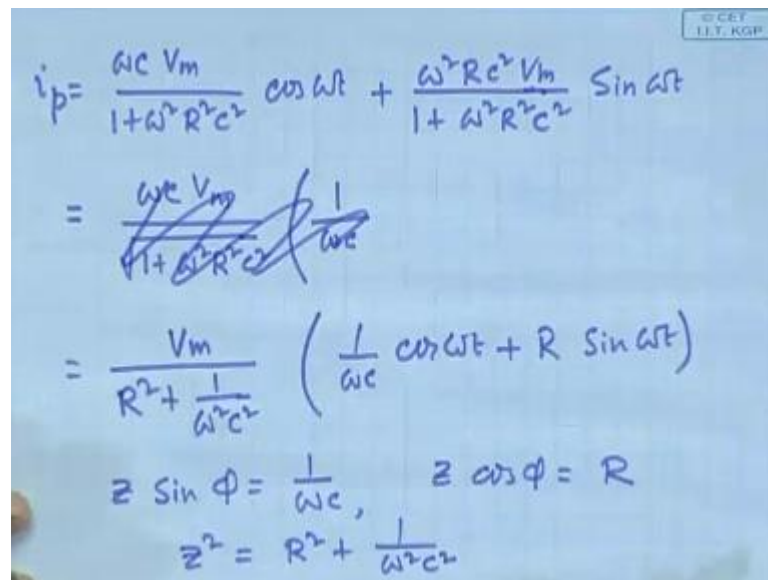 © CET
I.I.T. KGP
i_p = ωC V_m / (1+ω²R²C²) cos ωt + ω²RC² V_m / (1+ω²R²C²) Sin ωt
= V_m / (R² + 1/(ω²C²)) (1/(ωC) cos ωt + R Sin ωt)
z Sin φ = 1/(ωC), z cos φ = R
z² = R² + 1/(ω²C²)